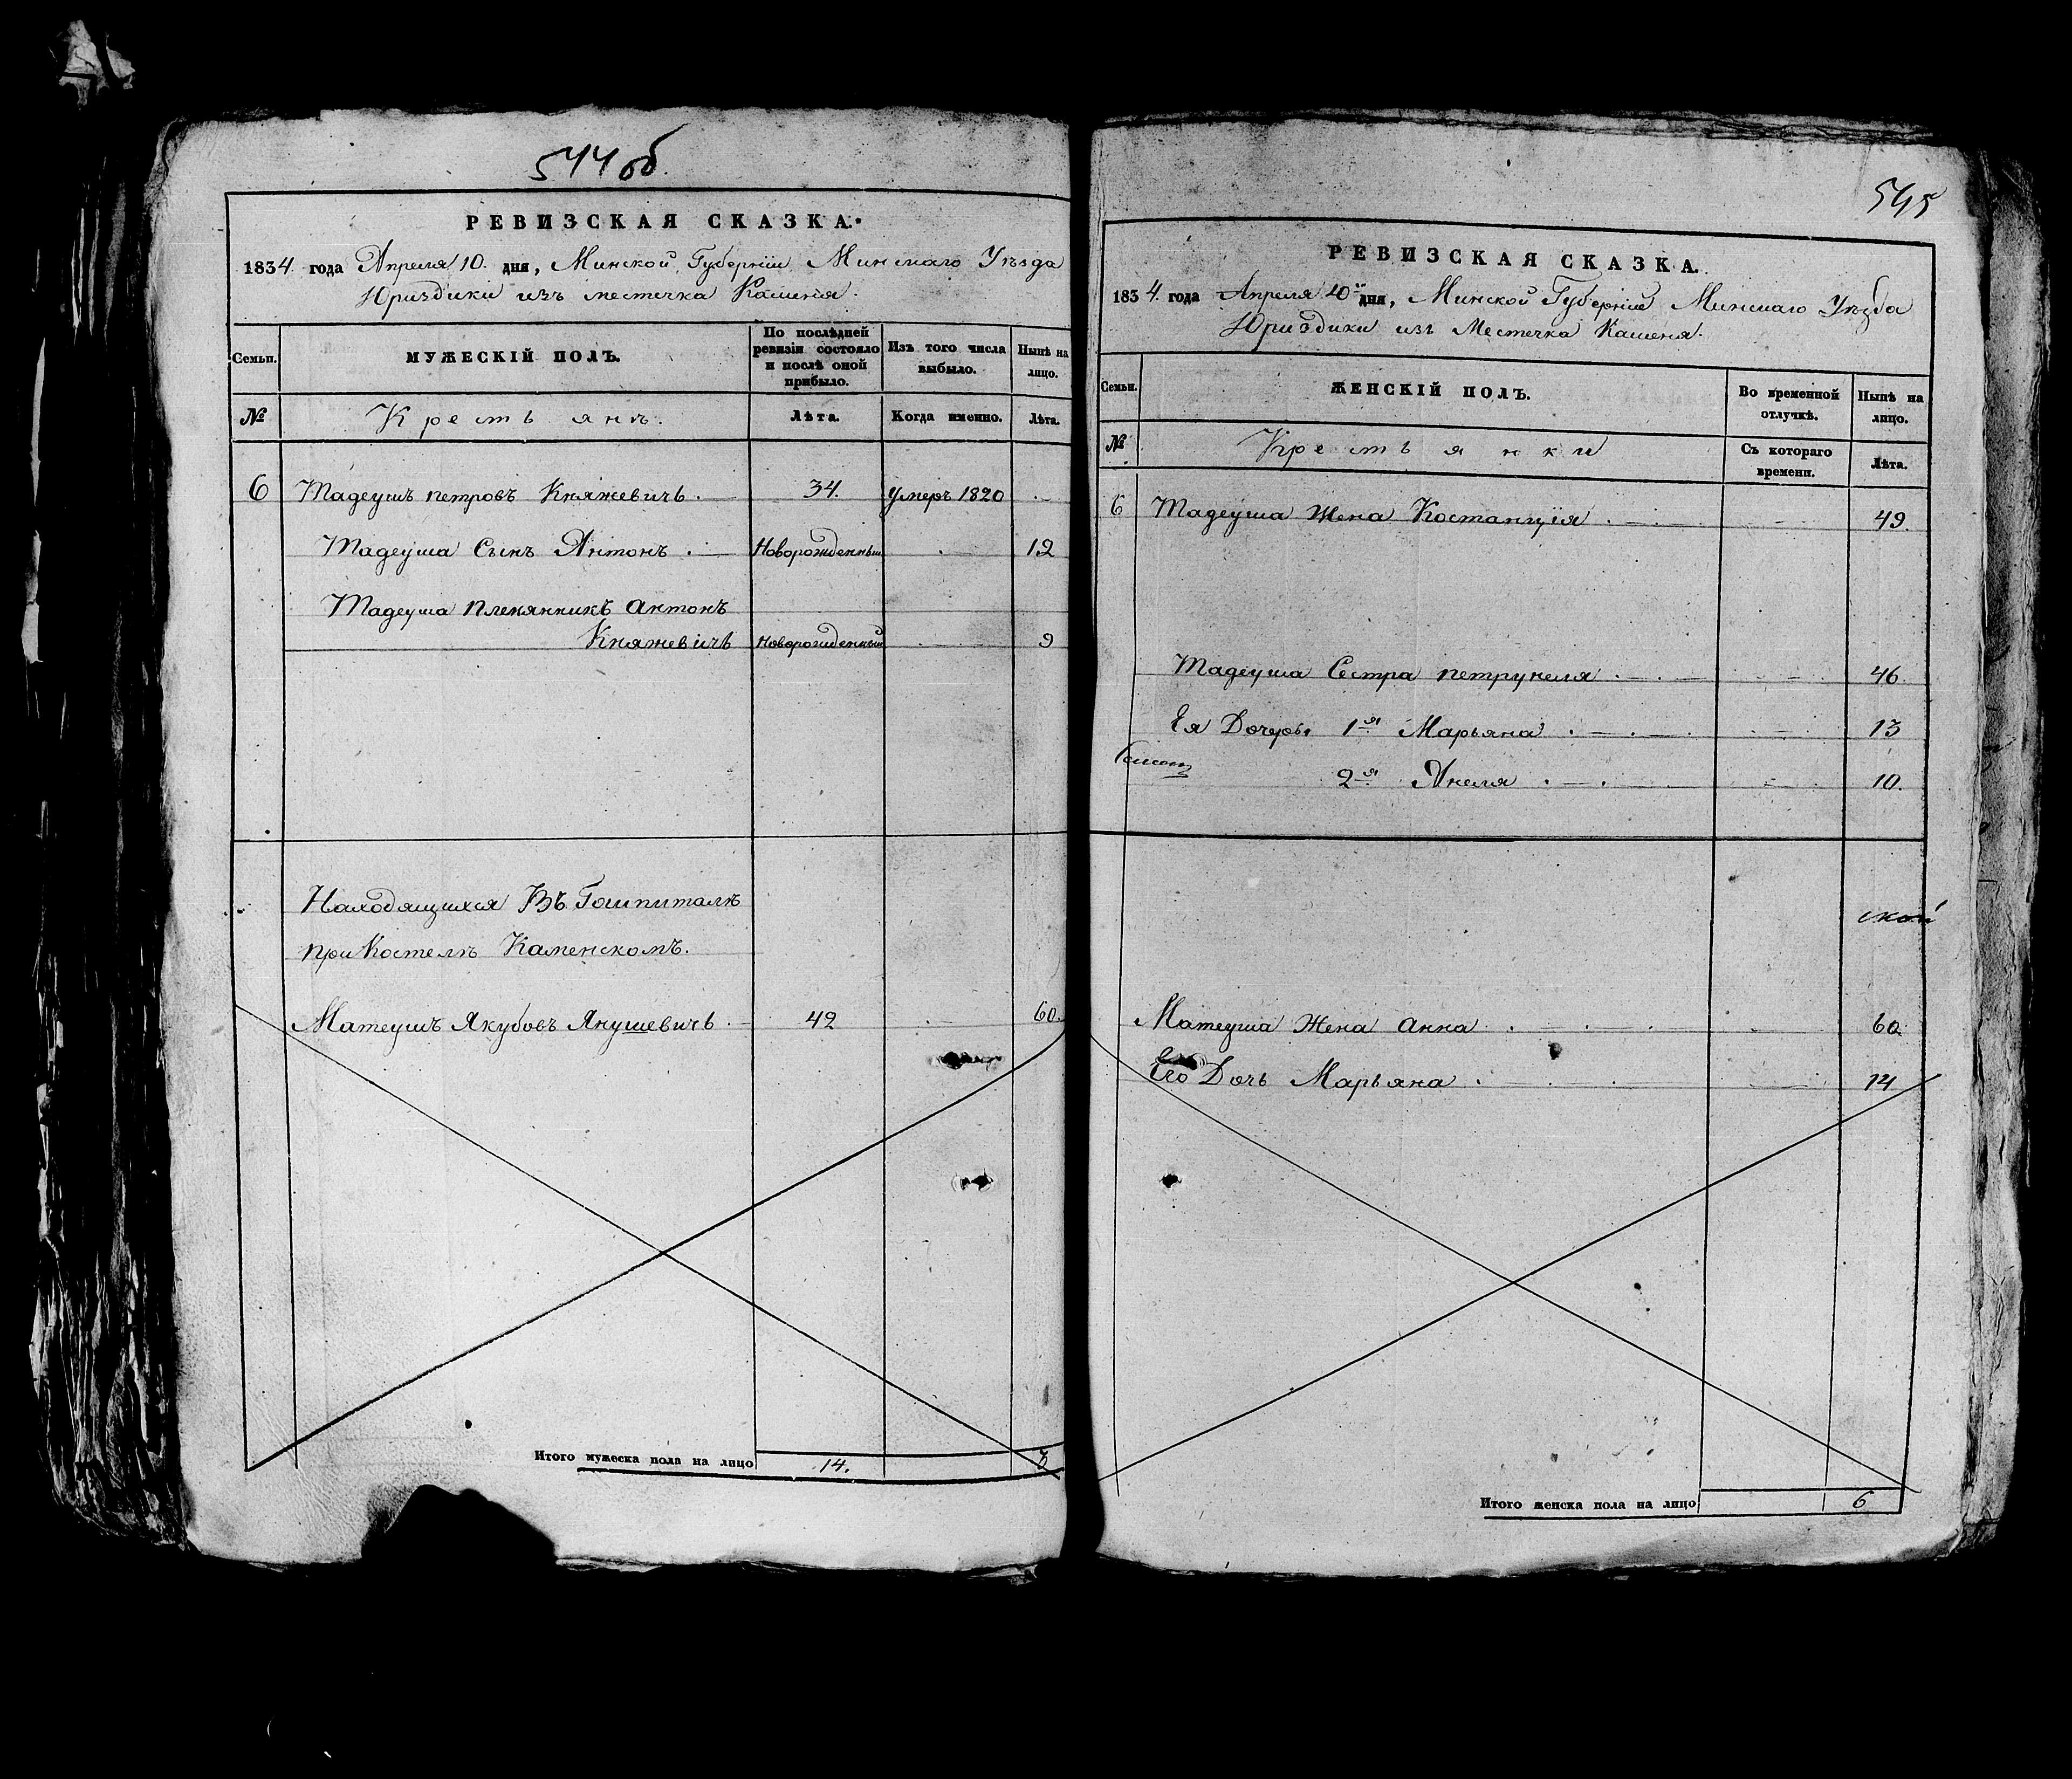 544 об.
РЕВИЗСКАЯ СКАЗКА.
1834. года Апреля 10. дня, Минской Губерніи Минскаго Уѣзда
Юриздики изъ местечка Каменя.
Семьи.
МУЖЕСКІЙ ПОЛЪ.
По послѣдней ревизіи состояло и послѣ оной прибыло.
Изъ того числа выбыло.
Нынѣ на лицо.
№
Крестьянъ.
Лѣта.
Когда именно.
Лѣта.
6 Тадеушъ петровъ Княжевичь. 34. умеръ 1820
Тадеуша Сынъ Антонъ. Новорожденный 12
Тадеуша племянникъ антонъ
Княжевичь Новорожденный 9
Находящихся Въ Гошпиталѣ
при Костелѣ Каменскомъ.
Матеушъ Якубовъ Янушевичь. 42 60.
Итого мужеска пола на лицо 14. 3
545
РЕВИЗСКАЯ СКАЗКА.
1834. года Апреля 10 дня, Минской Губерніи Минскаго Уѣзда
Юриздики изъ Местечка Каменя.
Семьи.
ЖЕНСКІЙ ПОЛЪ.
Во временной отлучкѣ.
Нынѣ на лицо.
№
Крестьянки
Съ котораго времени.
Лѣта.
6 Тадеуша Жена Костанція. 49.
Тадеуша Сестра петрунеля. 46
Ея Дочерь. 1я Марьяна. 13
2я Анеля. 10.
ской
Матеуша Жена анна. 60.
Его Дочь Марьяна. 14
Итого женска пола на лицо 6